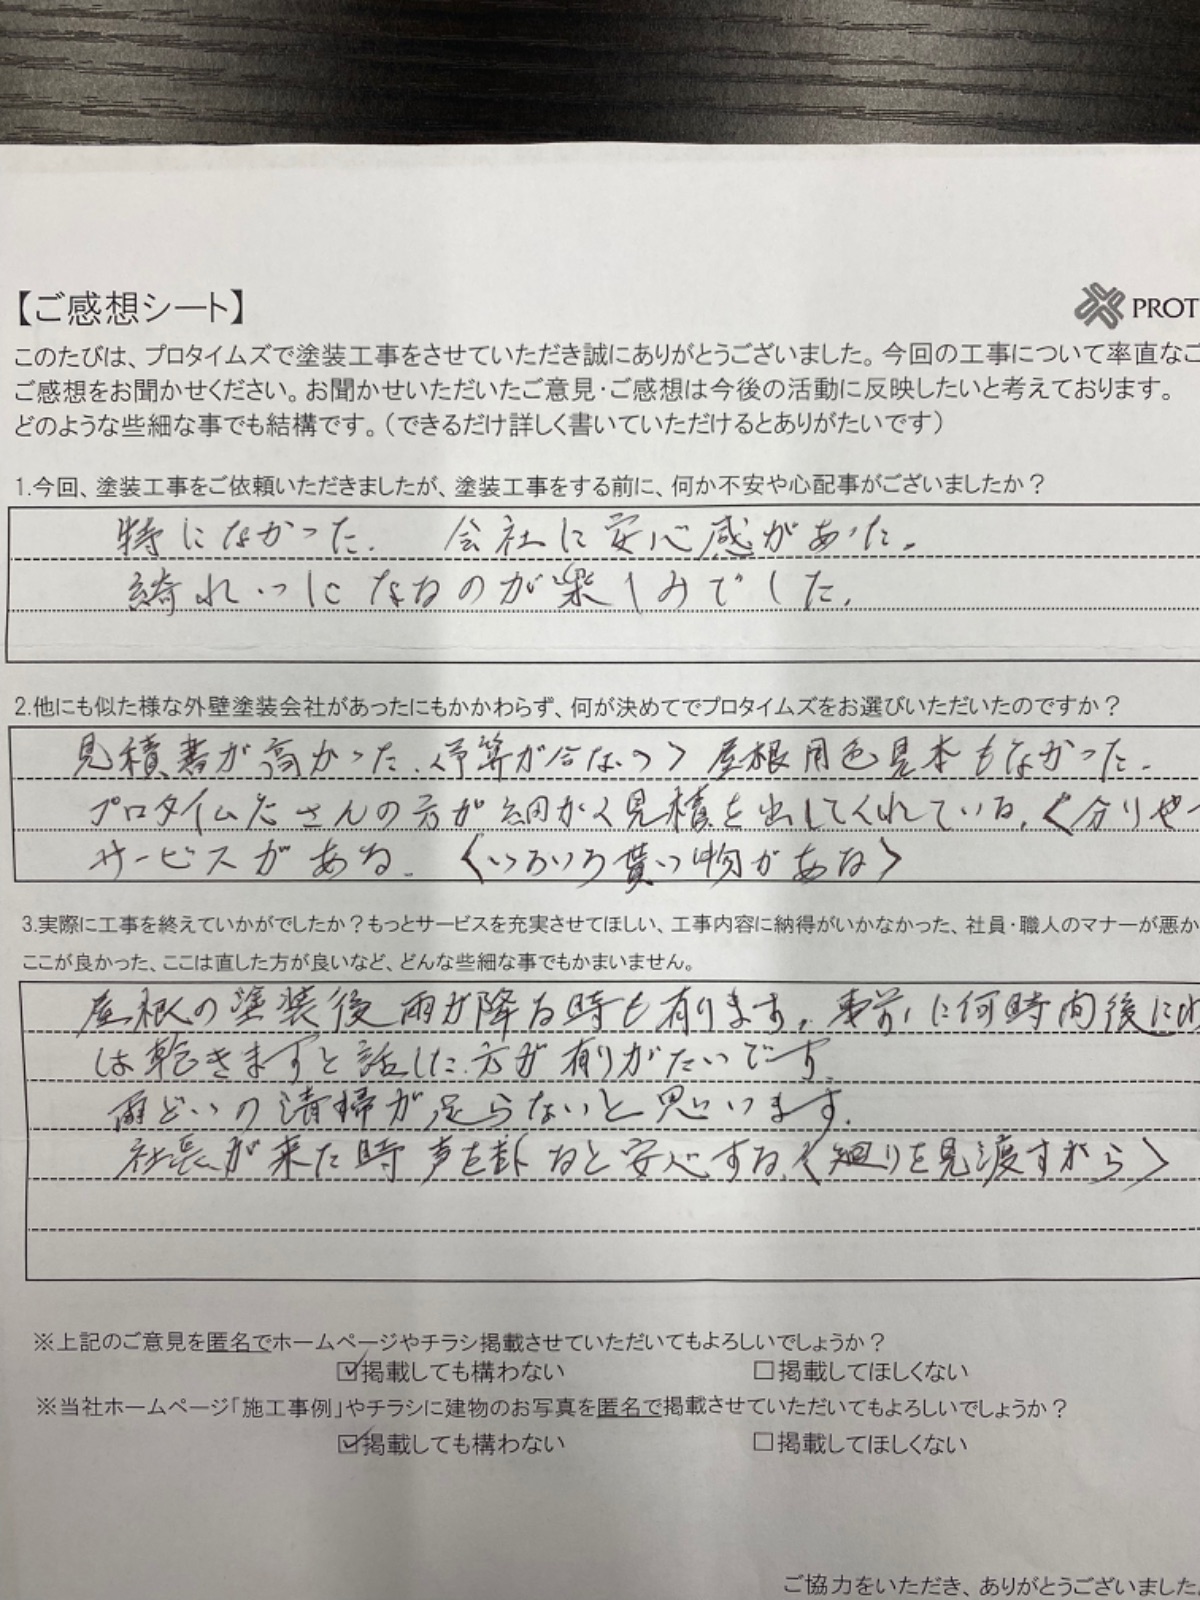 【ご感想シート】
PROT
このたびは、プロタイムズで塗装工事をさせていただき誠にありがとうございました。今回の工事について率直なご
ご感想をお聞かせください。お聞かせいただいたご意見・ご感想は今後の活動に反映したいと考えております。
どのような些細な事でも結構です。（できるだけ詳しく書いていただけるとありがたいです）
1.今回、塗装工事をご依頼いただきましたが、塗装工事をする前に、何か不安や心配事がございましたか？
特になかった. 会社に安心感があった。
綺れいになるのが楽しみでした.
2.他にも似た様な外壁塗装会社があったにもかかわらず、何が決めてでプロタイムズをお選びいただいたのですか？
見積書が高かった. 予算が合ない 屋根用色見本もなかった.
プロタイムズさんの方が細かく見積を出してくれている.〈分りや
サービスがある.〈いろいろ貰い物がある〉
3.実際に工事を終えていかがでしたか？もっとサービスを充実させてほしい、工事内容に納得がいかなかった、社員・職人のマナーが悪か
ここが良かった、ここは直した方が良いなど、どんな些細な事でもかまいません。
屋根の塗装後雨が降る時も有ります. 事前に何時間後に
は乾きますと話した方が有りがたいです.
雨どいの清掃が足らないと思います.
社長が来た時声を掛ると安心する.〈廻りを見渡すがら〉
※上記のご意見を匿名でホームページやチラシ掲載させていただいてもよろしいでしょうか？
☑掲載しても構わない □掲載してほしくない
※当社ホームページ「施工事例」やチラシに建物のお写真を匿名で掲載させていただいてもよろしいでしょうか？
☑掲載しても構わない □掲載してほしくない
ご協力をいただき、ありがとうございました。